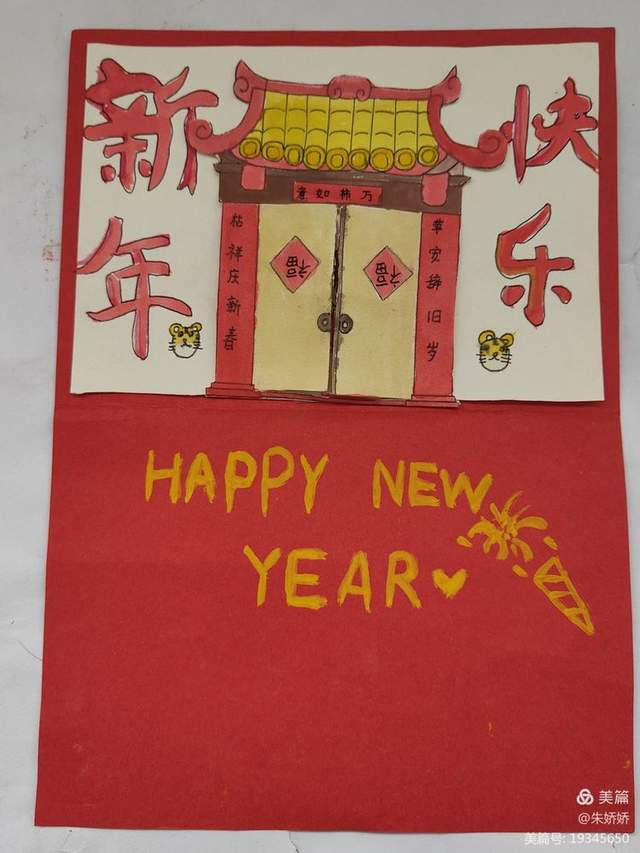 新年
快乐
万柿如意
苹安辞旧岁
桔祥庆新春
福
福
HAPPY NEW
YEAR
美篇
@朱娇娇
美篇号: 19345650